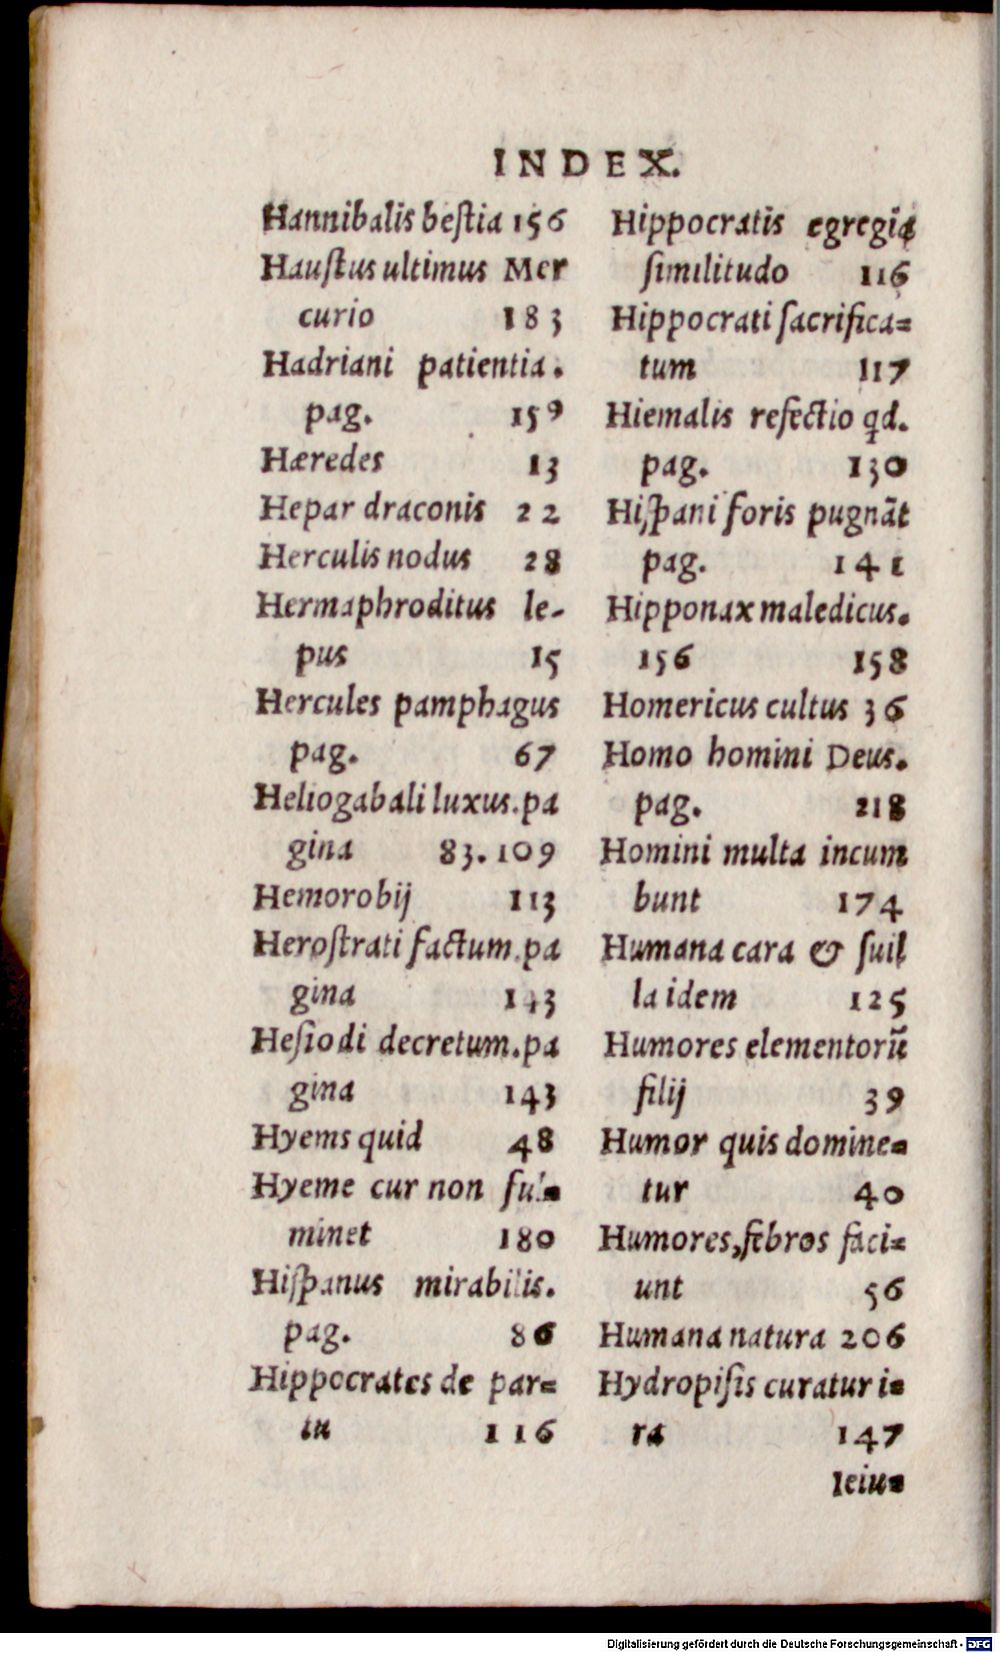 INDEX.
Hannibalis beſtia 156
Hauſtus ultimus Mer
curio 183
Hadriani patientia.
pag. 159
Hæredes 13
Hepar draconis 22
Herculis nodus 28
Hermaphroditus le-
pus 15
Hercules pamphagus
pag. 67
Heliogabali luxus.pa
gina 83.109
Hemorobij 113
Heroſtrati factum.pa
gina 143
Heſiodi decretum.pa
gina 143
Hyems quid 48
Hyeme cur non ful=
minet 180
Hiſpanus mirabilis.
pag. 86
Hippocrates de par=
tu 116
Hippocratis egregia
ſimilitudo 116
Hippocrati ſacrifica=
tum 117
Hiemalis refectio qd.
pag. 130
Hiſpani foris pugnãt
pag. 141
Hipponax maledicus.
156 158
Homericus cultus 36
Homo homini Deus.
pag. 218
Homini multa incum
bunt 174
Humana cara & ſuil
la idem 125
Humores elementorũ
filij 39
Humor quis domine=
tur 40
Humores,febros faci=
unt 56
Humana natura 206
Hydropiſis curatur i=
ra 147
Ieiu=
Digitalisierung gefördert durch die Deutsche Forschungsgemeinschaft - DFG